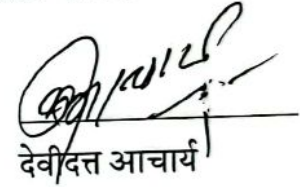 देवीदत्त आचार्य